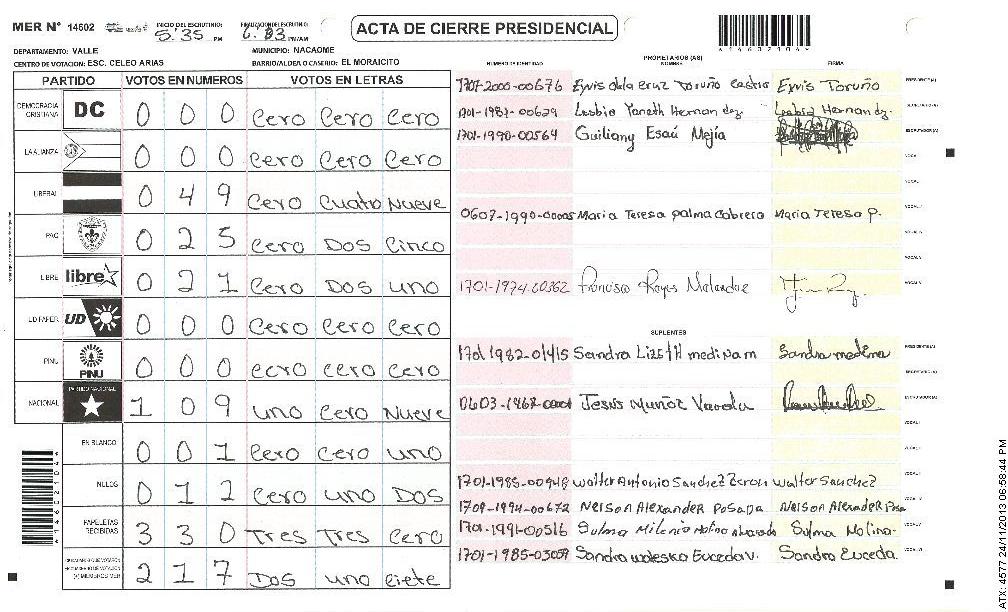 MER N° 14602 INICIO DEL ESCRUTINIO: 5:35 PM FINALIZACION DEL ESCRUTINIO: PM/AM ACTA DE CIERRE PRESIDENCIAL
DEPARTAMENTO: VALLE MUNICIPIO: NACAOME
CENTRO DE VOTACION: ESC. CELEO ARIAS BARRIO/ALDEA O CASERIO: EL MORAICITO
PARTIDO VOTOS EN NUMEROS VOTOS EN LETRAS
DEMOCRACIA CRISTIANA DC 0 0 0 Cero Cero Cero
LA ALIANZA 0 0 0 Cero Cero Cero
LIBERAL 0 4 9 Cero Cuatro Nueve
PAC 0 2 5 Cero Dos Cinco
LIBRE libre 0 2 1 Cero Dos uno
UD FAPER UD 0 0 0 Cero Cero Cero
PINU PINU 0 0 0 ecro cero Cero
NACIONAL PARTIDO NACIONAL 1 0 9 uno Cero Nueve
EN BLANCO 0 0 1 Cero Cero uno
NULOS 0 1 2 Cero uno Dos
PAPELETAS RECIBIDAS 3 3 0 Tres Tres Cero
2 1 7 Dos uno ciete
PROPIETARIOS (AS)
NUMERO DE IDENTIDAD NOMBRE FIRMA
1707-2000-00676 Toruño Castro Toruño PRESIDENTE(A)
1701-1987-00629 Lesbia Yaneth Hernandez Lesbia Hernandez SECRETARIO(A)
1701-1990-00564 Guiliany Esaú Mejía ESCRUTADOR(A)
0607-1990- Maria Teresa palma Cabrera Maria Teresa p.
1701-1974-00362 Francisco Reyes
SUPLENTES
1701 1982-01415 Sandra Lizeth medina m Sandra medina PRESIDENTE(A)
SECRETARIO(A)
0603-1962- Jesus Muñoz ESCRUTADOR(A)
1701-1985-00948 Walter Antonio Sanchez Walter Sanchez
1709-1994-00672 Nelson Alexander Posada Nelson Alexander
1701-1991-00516 Sulma Molina Sulma Molina
1701-1985-03059 Sandra Euceda V. Sandra Euceda.
ATX: 4577 24/11/2013 06:58:44 PM